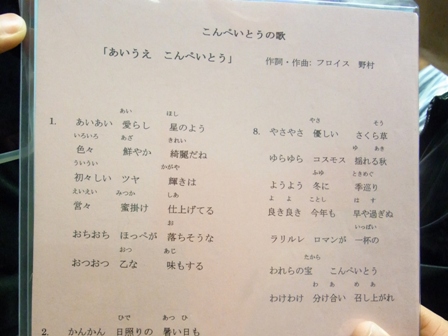 こんぺいとうの歌
「あいうえ　こんぺいとう」　作詞・作曲: フロイス　野村
あい　ほし
1.　あいあい　愛らし　星のよう
いろいろ　あざ　きれい
色々　鮮やか　綺麗だね
ういうい　かがや
初々しい　ツヤ　輝きは
えいえい　みつか　しあ
営々　蜜掛け　仕上げてる
お
おちおち　ほっぺが　落ちそうな
おつ　あじ
おつおつ　乙な　味もする
ひで　あつ　ひ
2.　かんかん　日照りの　暑い日も
やさ　そう
8.　やさやさ　優しい　さくら草
ゆ　あき
ゆらゆら　コスモス　揺れる秋
ふゆ　ときめぐ
ようよう　冬に　季巡り
よ　よ　ことし　は　す
良き良き　今年も　早や過ぎぬ
いっぱい
ラリルレ　ロマンが　一杯の
たから
われらの宝　こんぺいとう
わ　あ　め　あ
わけわけ　分け合い　召し上がれ